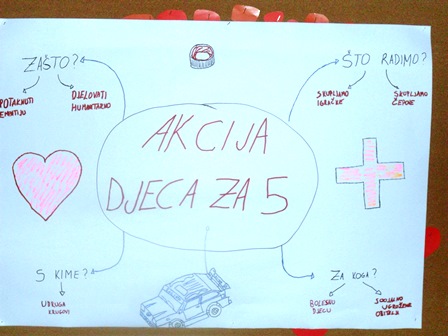 ZAŠTO?
POTAKNUTI
EMPATIJU
DJELOVATI
HUMANITARNO
ŠTO RADIMO?
SKUPLJAMO
IGRAČKE
SKUPLJAMO
ČEPOVE
AKCIJA
DJECA ZA 5
S KIME?
UDRUGA
KRUGOVI
ZA KOGA?
BOLESNU
DJECU
SOCIJALNO
UGROŽENE
OBITELJI